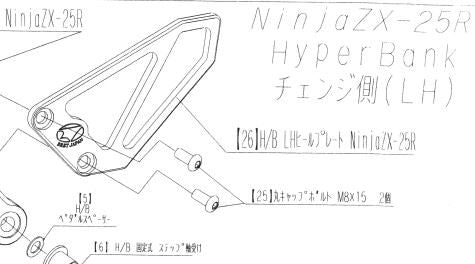 NinjaZX-25R
NinjaZX-25R
HyperBank
チェンジ側(LH)
【26】H/B LHヒールプレート NinjaZX-25R
【25】丸キャップボルト M8X15 2個
【5】
H/B
ペダルスペーサー
【6】 H/B 固定式 ステップ軸受け